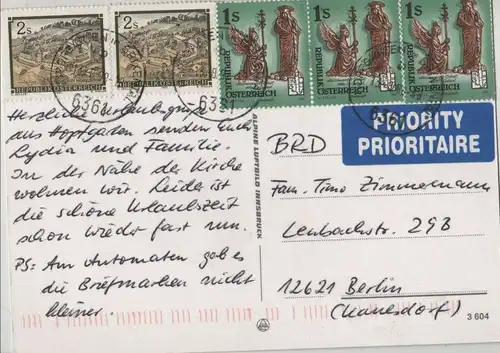 2s
2s
1s
1s
1s
REPUBLIK ÖSTERREICH
REPUBLIK ÖSTERREICH
REPUBLIK
ÖSTERREICH
REPUBLIK
ÖSTERREICH
REPUBLIK
ÖSTERREICH
6361
6361
6361
PRIORITY
PRIORITAIRE
Herzliche Urlaubsgrüße
aus Hopfgarten senden Euch
Lydia und Familie.
In der Nähe der Kirche
wohnen wir. Leider ist
die schöne Urlaubszeit
schon wieder fast um.
PS: Am Automaten gab es
die Briefmarken nicht
kleiner.
ALPINE LUFTBILD INNSBRUCK
BRD
Fam. Timo Zimmermann
Lenbachstr. 29B
12621 Berlin
(Kaulsdorf)
3 604